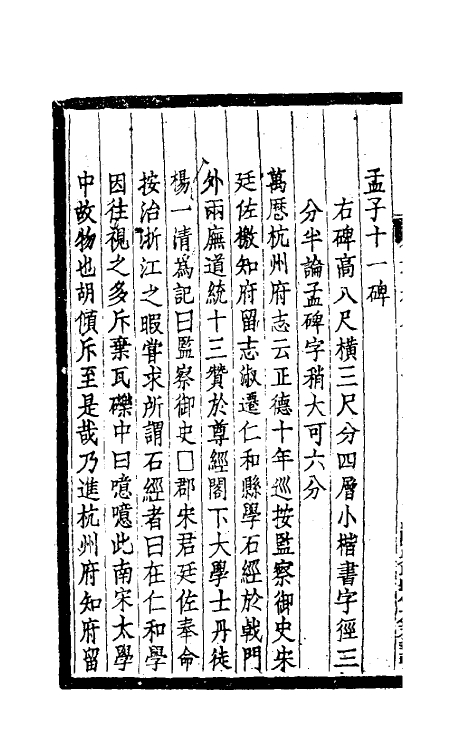 孟子十一碑
右碑高八尺橫三尺分四層小楷書字徑三
分半論孟碑字稍大可六分
萬厯杭州府志云正德十年巡按監察御史宋
廷佐檄知府留志淑遷仁和縣學石經於戟門
外兩廡道統十三贊於尊經閣下大學士丹徒
楊一清爲記曰監察御史□郡宋君廷佐奉命
按治浙江之暇嘗求所謂石經者曰在仁和學
因往視之多斥棄瓦礫中曰噫噫此南宋太學
中故物也胡傾斥至是哉乃進杭州府知府留